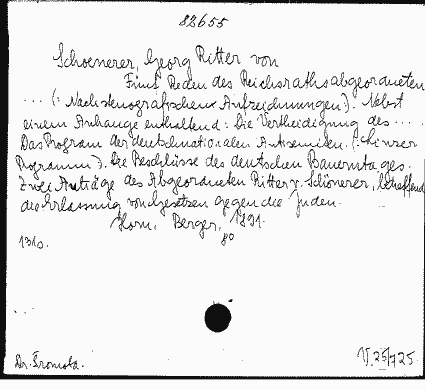 82655
Schoenerer, Georg Ritter von
Fünf Reden des Reichsrathsabgeordneten
... (: Nach stenografischen Aufzeichnungen). Nebst
einem Anhange enthaltend: Die Vertheidigung des ....
Das Program der deutschnationalen Antisemiten. (: Linzer
Programm). Die Beschlüsse des deutschen Bauerntages.
Zwei Anträge des Abgeordneten Ritter v. Schönerer, betreffend
die Erlassung von Gesetzen gegen die Juden.
Horn, Berger, 1891.
8o
131o.
Dr. Fromota.
V. 25/725